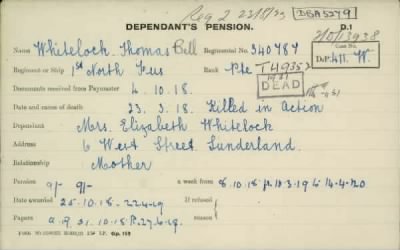 Reg 2 22/8/23 DBA5279
DEPENDANT'S PENSION. D.1
2/0/13938
Name Whitelock. Thomas Bell Regimental No. 340787 Case No.
Regiment or Ship 1st North Fus Rank Pte T49353 DeP: 4TT. W.
Documents received from Paymaster 4. 10. 18. 1931 DEAD
Date and cause of death 23. 3. 18. Killed in Action
Dependant Mrs. Elizabeth Whitelock
Address 6 West Street, Sunderland.
Relationship Mother
Pension 9/- 9/- a week from 8.10.18 13.3.19 to 14.4.20
Date awarded 25.10.18. 22.4.19 If refused
Papers a.g. 31.10.18. 27.6.19. reason